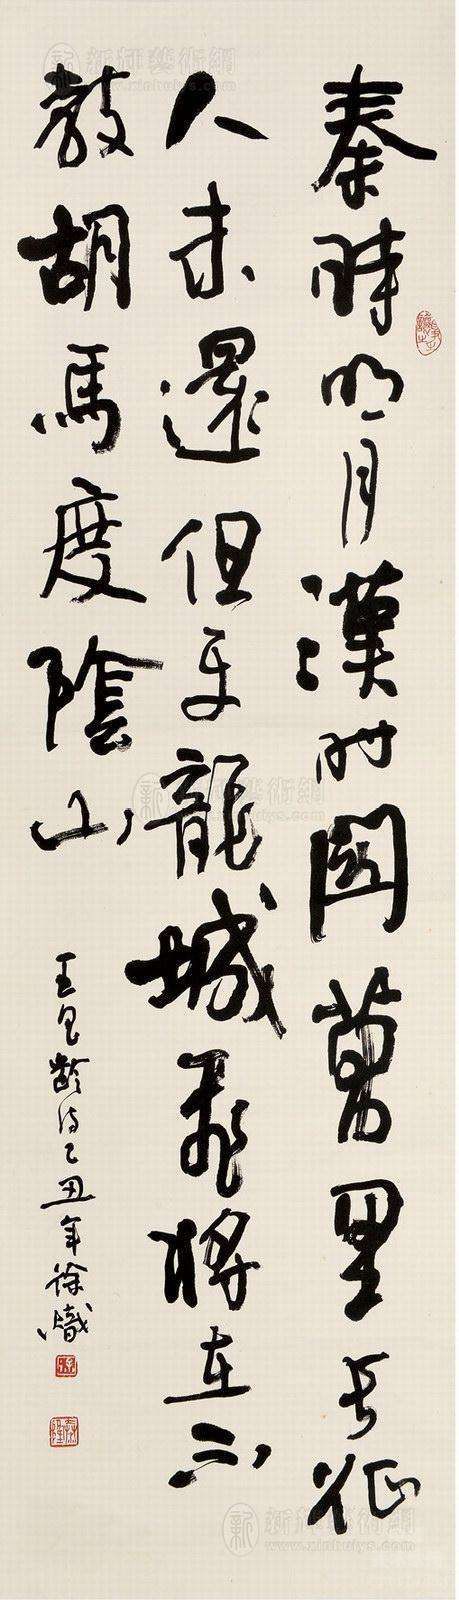 秦時明月漢時關萬里長征
人未還但使龍城飛將在不
教胡馬度陰山
王昌齡詩乙丑年徐熾
新輝藝術網
www.xinhuiys.com